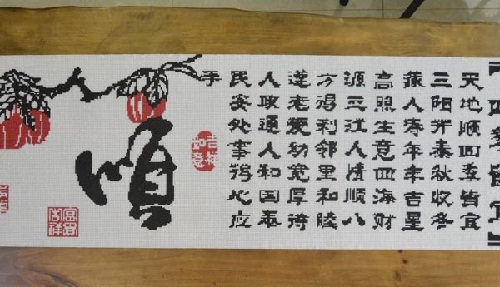 天地顺四季皆宜
三阳开泰秋收冬
藏人寿年丰吉星
高照生意四海财
源三江人情顺八
方得利邻里和睦
遵老爱幼宽厚待
人政通人和国泰
民安处事得心应
手
吉祥如意
顺
富贵吉祥